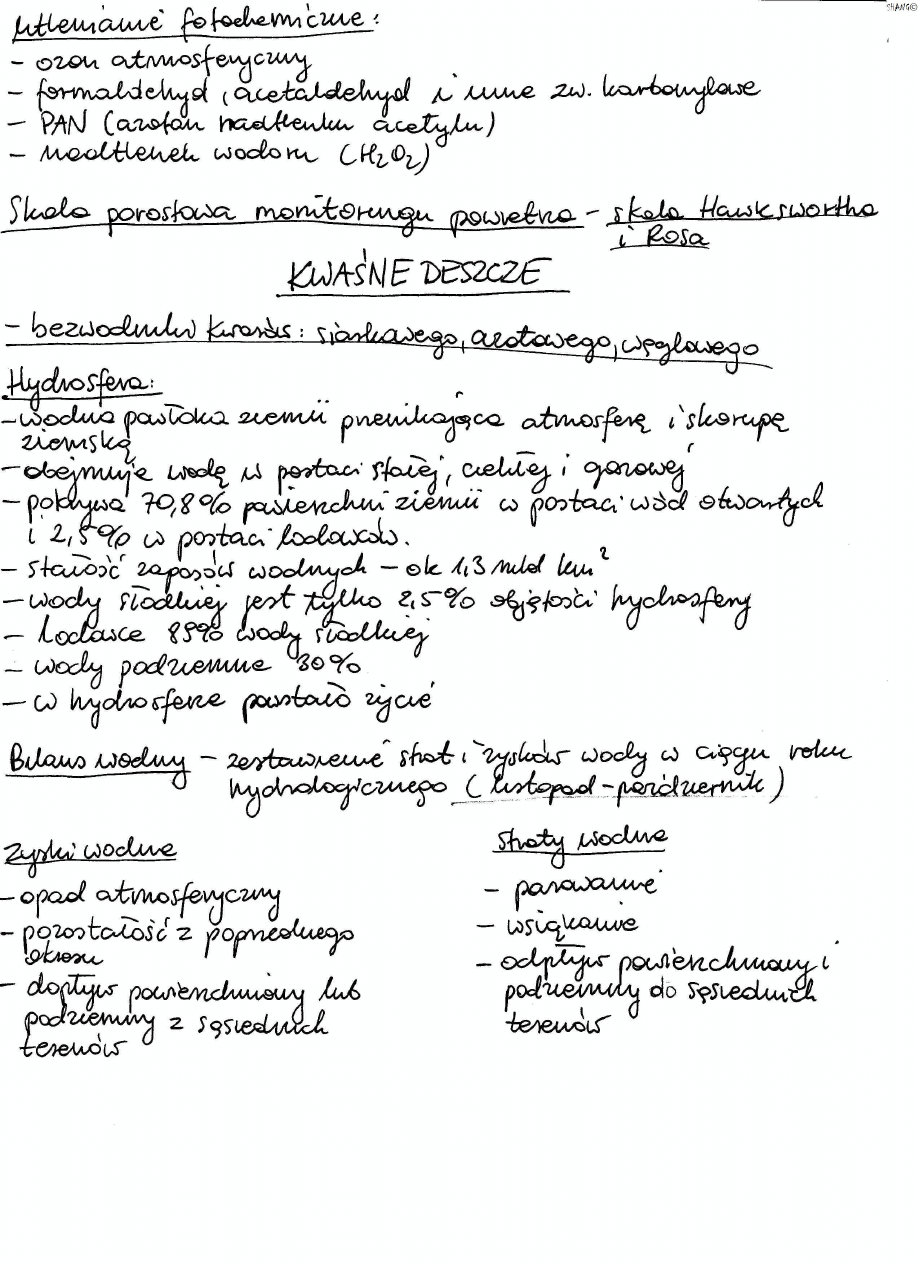 SHANG©
Utlenianie fotochemiczne:
- ozon atmosferyczny
- formaldehyd, acetaldehyd i inne zw. karbonylowe
- PAN (azotan nadtlenku acetylu)
- Nadtlenek wodoru (H₂O₂)
Skala porostowa monitoringu powietrza - skala Hawkswortha
i Rosa
KWAŚNE DESZCZE
- bezwodników kwasów: siarkawego, azotowego, węglowego
Hydrosfera:
- wodna powłoka ziemii przenikająca atmosferę i skorupę
ziemską
- obejmuje wodę w postaci stałej, ciekłej i gazowej
- pokrywa 70,8% powierzchni ziemii w postaci wód otwartych
i 2,5% w postaci lodowców.
- stałość zapasów wodnych - ok 1,3 mld km²
- wody słodkiej jest tylko 2,5% objętości hydrosfery
- Lodowce 85% wody słodkiej
- wody podziemne 30%
- w hydrosferze powstało życie
Bilans wodny - zestawienie strat i zysków wody w ciągu roku
hydrologicznego (listopad-październik)
Zyski wodne
- opad atmosferyczny
- pozostałość z poprzedniego
okresu
- dopływ powierzchniowy lub
podziemny z sąsiednich
terenów
Straty wodne
- parowanie
- wsiąkanie
- odpływ powierzchniowy i
podziemny do sąsiednich
terenów